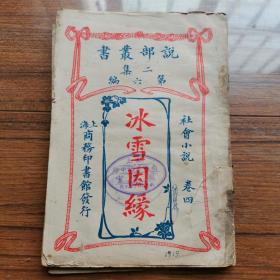 説部叢書
二集
第六編
社會小說 卷四
冰雪因緣
上海
商務印書館發行
1915